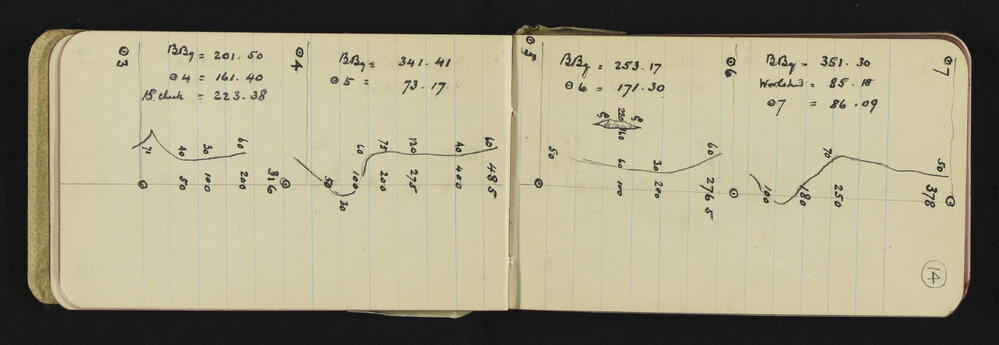 ⊙3
BBg = 201.50
⊙4 = 161.40
15 Check = 223.38
71 40 30 60
50 100 200 316
⊙4
BBg = 341.41
⊙5 = 73.17
60 75 120 40 60
50 100 200 275 400 485
30
⊙5
BBg = 253.17
⊙6 = 171.30
50 60 30 60
100 200 276.5
⊙6
BBg = 351.30
= 85.15
⊙7 = 86.09
70 50
100 180 250 378
⊙7
14